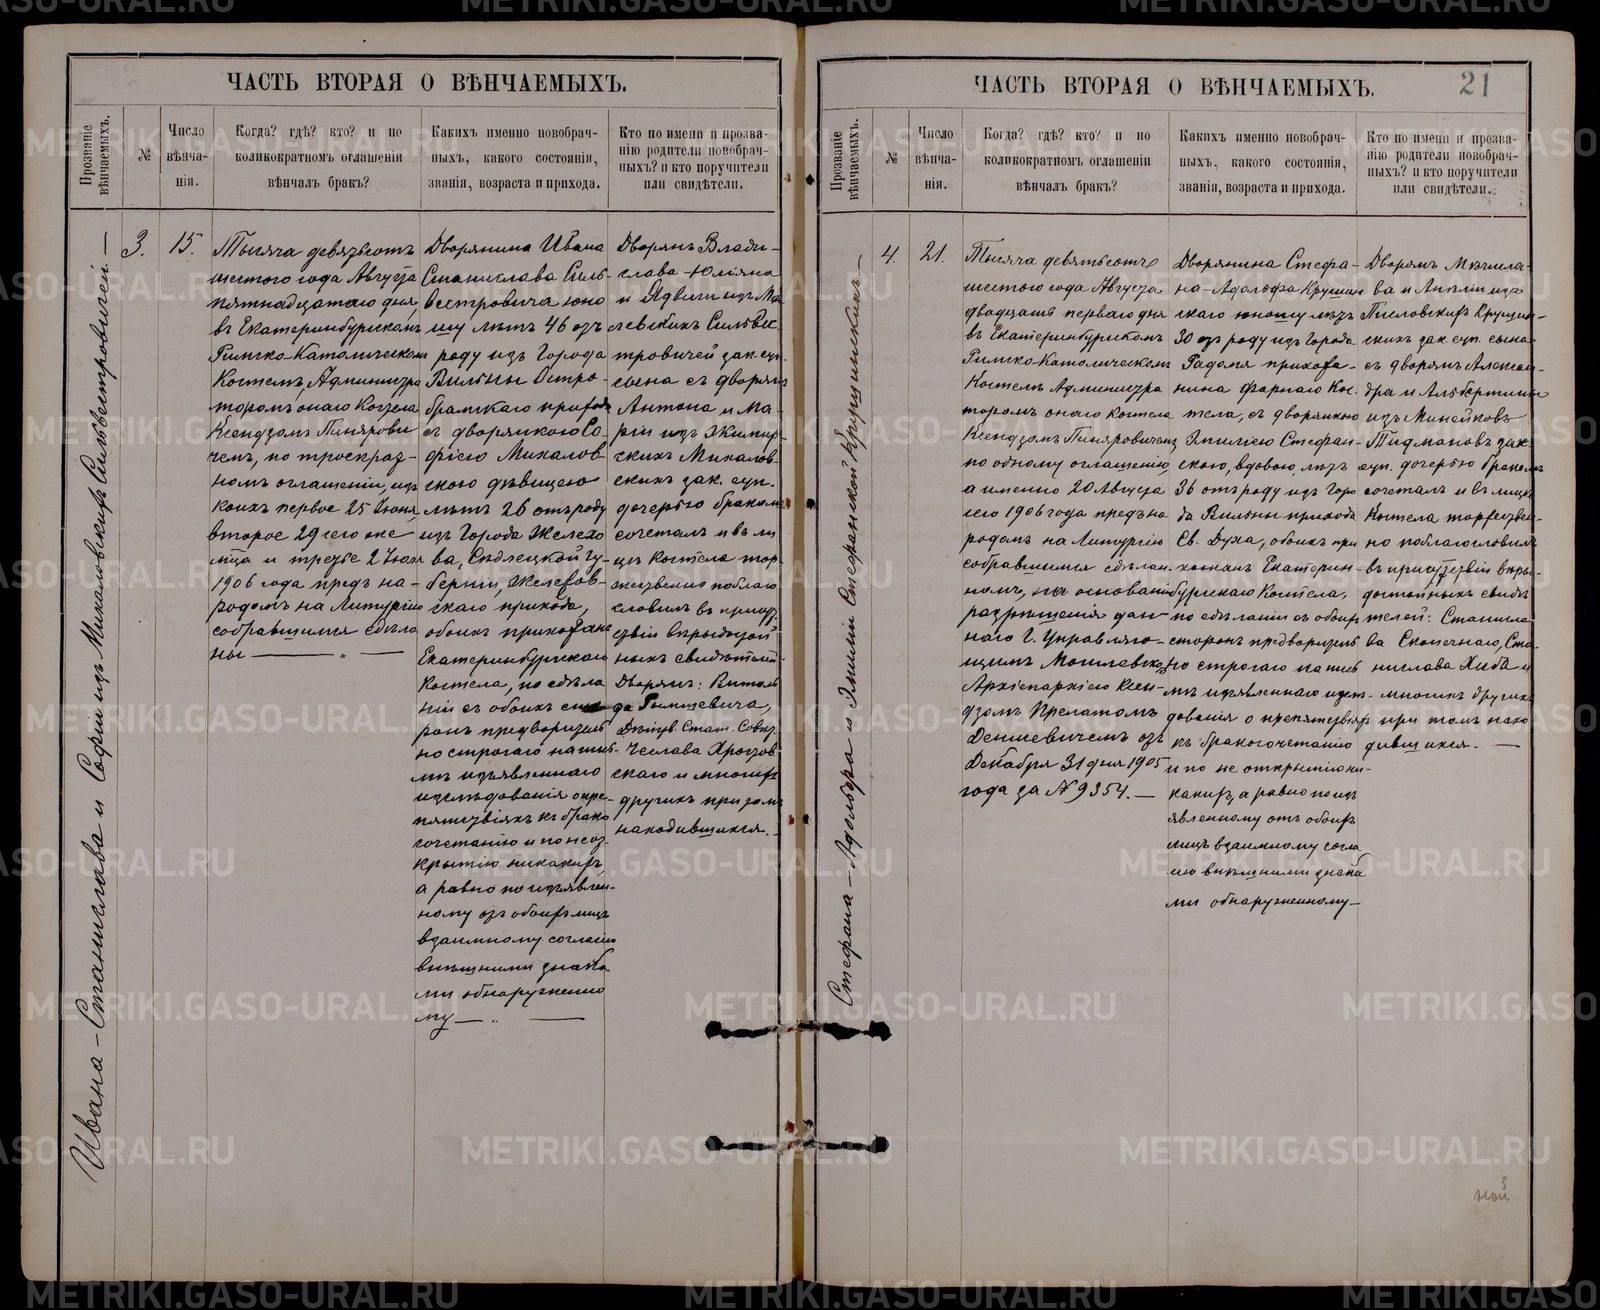 ЧАСТЬ ВТОРАЯ О ВѢНЧАЕМЫХЪ.
Прозваніе вѣнчаемыхъ.
№
Число
вѣнча-
нія.
Когда? гдѣ? кто? и по
коликократномъ оглашеніи
вѣнчалъ бракъ?
Какихъ именно новобрач-
ныхъ, какого состоянія,
званія, возраста и прихода.
Кто по имени и прозва-
нію родители новобрач-
ныхъ? и кто поручители
или свидѣтели.
Ивана-Станислава и Софіи изъ Михаловскихъ Сильвестровичей —
3.
15.
Тысяча девятьсотъ
шестого года Августа
пятнадцатаго дня,
въ Екатеринбургскомъ
Римско-Католическомъ
Костелѣ, Администра
торомъ онаго Костела
Ксендзомъ Пинярови
чемъ, по троекрат-
номъ оглашеніи, изъ
коихъ первое 25 Іюня,
второе 29 сего же
мѣсяца и третье 2 Іюля
1906 года предъ на-
родомъ на Литургію
собравшимся сдѣла
ны — „ —
Дворянина Ивана
Станислава Силь-
вестровича юно
шу лѣтъ 46 отъ
роду изъ Города
Вильны Остро-
брамскаго прихода
съ дворянкою Со-
фіею Михалов
скою дѣвицею
лѣтъ 26 отъ роду
изъ Города Желехо
ва, Сѣдлецкой Гу-
берніи, Желехов-
скаго прихода,
обоихъ прихожанъ
Екатеринбургскаго
Костела, по сдѣла
ніи съ обоихъ сто
ронъ предваритель
но строгаго на пись
мѣ изъявленнаго
изслѣдованія о пре-
пятствіяхъ къ брако
сочетанію и по неот-
крытію никакихъ,
а равно по изъявлен-
ному отъ обоихъ лицъ
взаимному согласію
внѣшними знака
ми обнаруженно
му — „ —
Дворянъ Влади-
слава-Юліяна
и Ядвиги изъ
левскихъ Сильвес
тровичей зак. суп.
сына съ дворянъ
Антона и Ма-
ріи изъ
скихъ Михалов-
скихъ зак. суп.
дочерью бракомъ
сочеталъ и въ ли
цѣ Костела тор
жественно поблаго
словилъ въ присут
ствіи вѣродостой
ныхъ свидѣтелей
Дворянъ: Витоль
да
Дѣйств. Стат. Совѣт.
Чеслава
скаго и многихъ
другихъ при томъ
находившихся. —
ЧАСТЬ ВТОРАЯ О ВѢНЧАЕМЫХЪ.
21
Прозваніе вѣнчаемыхъ.
№
Число
вѣнча-
нія.
Когда? гдѣ? кто? и по
коликократномъ оглашеніи
вѣнчалъ бракъ?
Какихъ именно новобрач-
ныхъ, какого состоянія,
званія, возраста и прихода.
Кто по имени и прозва-
нію родители новобрач-
ныхъ? и кто поручители
или свидѣтели.
Стефана-Адольфа и Эмиліи Стефанской Крушинскихъ —
4.
21.
Тысяча девятьсотъ
шестого года Августа
двадцать перваго дня
въ Екатеринбургскомъ
Римско-Католическомъ
Костелѣ Администра
торомъ онаго Костела
Ксендзомъ Пиняровичемъ,
по одному оглашенію,
а именно 20 Августа
сего 1906 года предъ на
родомъ на Литургію
собравшимся сдѣлан-
номъ, на основаніи
разрѣшенія дан
наго г. Управляю-
щимъ Могилевскою
Архіепархіею Ксен-
дзомъ Прелатомъ
Денисевичемъ отъ
Декабря 31 дня 1905
года за № 9354. —
Дворянина Стефа-
на-Адольфа Крушин
скаго юношу лѣтъ
30 отъ роду изъ Города
Радомя прихожа-
нина фарнаго Кос.
тела, съ дворянкою
Эмиліею Стефан-
скою, вдовою, лѣтъ
36 отъ роду изъ Горо
да Вильны прихода
Св. Духа, обоихъ при
хожанъ Екатерин-
бургскаго Костела,
по сдѣланіи съ обоихъ
сторонъ предваритель
но строгаго на пись
мѣ изъявленнаго изслѣ-
дованія о препятствіяхъ
къ бракосочетанію
и по не открытію ни-
какихъ, а равно по изъ
явленному отъ обоихъ
лицъ взаимному согла
сію внѣшними знака
ми обнаруженному —
Дворянъ Мечисла-
ва и Анеліи изъ
Крушин-
скихъ зак. суп. сына
съ дворянъ Алексан-
дра и Альбертины
изъ
зак.
суп. дочерью бракомъ
сочеталъ и въ лицѣ
Костела торжествен-
но поблагословилъ
въ присутствіи вѣро-
достойныхъ свидѣ
телей: Станисла
ва Скопечнаго, Ста-
нислава Хиба и
многихъ другихъ
при томъ нахо
дившихся. —
METRIKI.GASO-URAL.RU